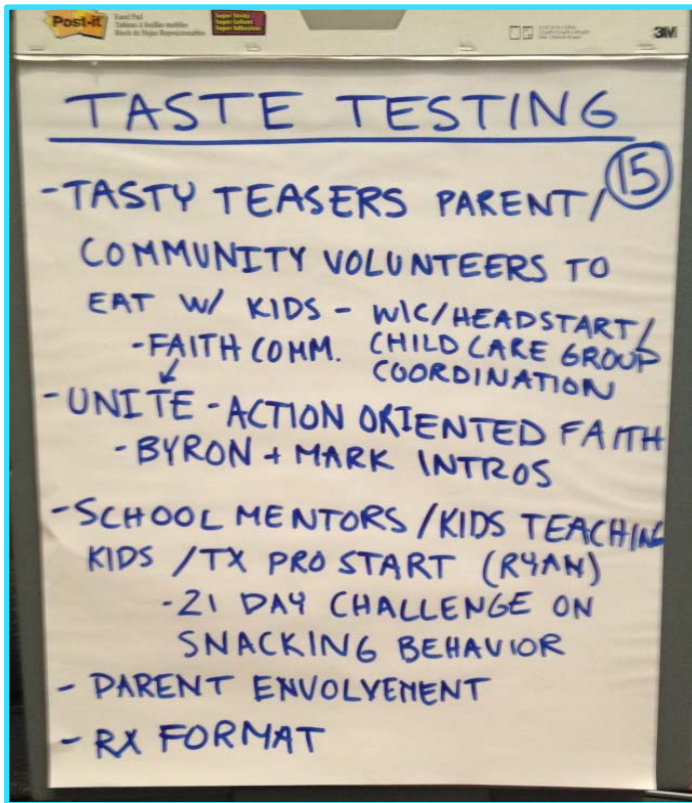 Post-it
Easel Pad
Super Sticky
3M
TASTE TESTING
15
- TASTY TEASERS PARENT/
COMMUNITY VOLUNTEERS TO
EAT W/ KIDS - WIC/HEADSTART/
- FAITH COMM. CHILD CARE GROUP
COORDINATION
- UNITE - ACTION ORIENTED FAITH
- BYRON + MARK INTROS
- SCHOOL MENTORS / KIDS TEACHING
KIDS / TX PRO START (RYAN)
- 21 DAY CHALLENGE ON
SNACKING BEHAVIOR
- PARENT ENVOLVEMENT
- RX FORMAT